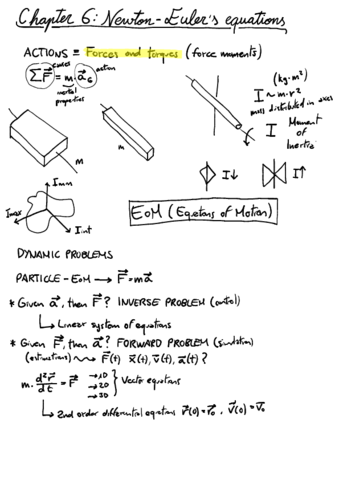 Chapter 6: Newton-Euler's equations
ACTIONS ≡ Forces and torques (force moments)
causes
ΣF⃗ = m·a⃗_G action
inertial properties
(kg·m²)
I ~ m·r²
mass distributed in axes
I Moment of Inertia
m
m
I↓ I↑
Imin
Imax
Iint
EoM (Equations of Motion)
DYNAMIC PROBLEMS
PARTICLE - EoM → F⃗ = ma⃗
* Given a⃗, then F⃗? INVERSE PROBLEM (control)
↳ Linear system of equations
* Given F⃗, then a⃗? FORWARD PROBLEM (simulation)
(estimations) F⃗(t) x⃗(t), v⃗(t), a⃗(t)?
m·d²r⃗/dt = F⃗ →1D →2D →3D } Vector equations
↳ 2nd order differential equations r⃗(0)=r⃗₀, v⃗(0)=v⃗₀